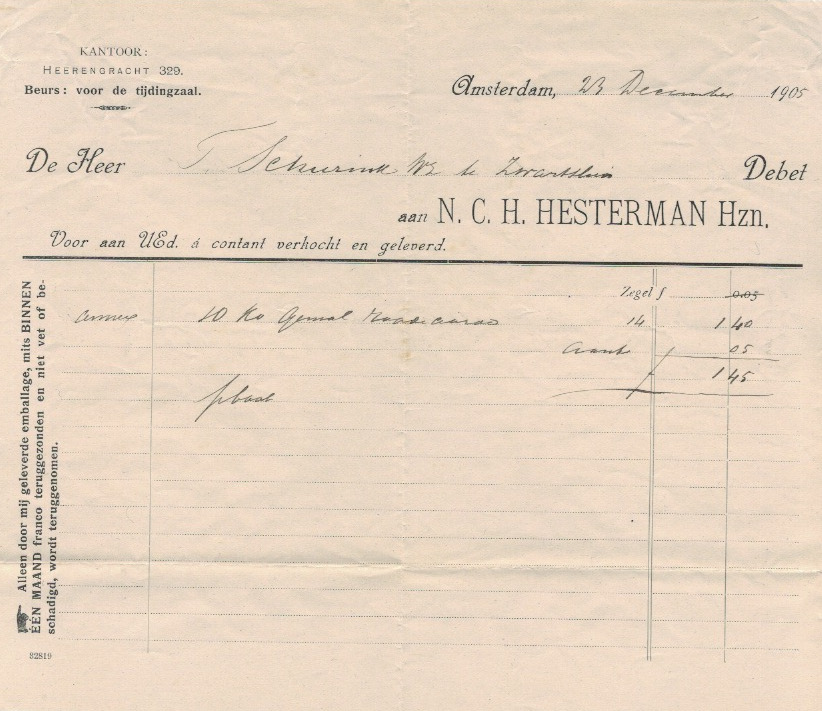 KANTOOR:
HEERENGRACHT 329.
Beurs: voor de tijdingzaal.
Amsterdam, 23 December 1905
De Heer T. Schurink Wz te Zwartsluis Debet
aan N. C. H. HESTERMAN Hzn.
Voor aan UEd. á contant verkocht en geleverd.
Zegel f 0.05
annex 10 Ko 14 1 40
05
1 45
Alleen door mij geleverde emballage, mits BINNEN
ÉÉN MAAND franco teruggezonden en niet vet of be-
schadigd, wordt teruggenomen.
82819